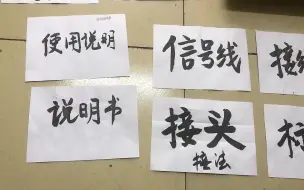 使用说明
信号线
说明书
接头
接法